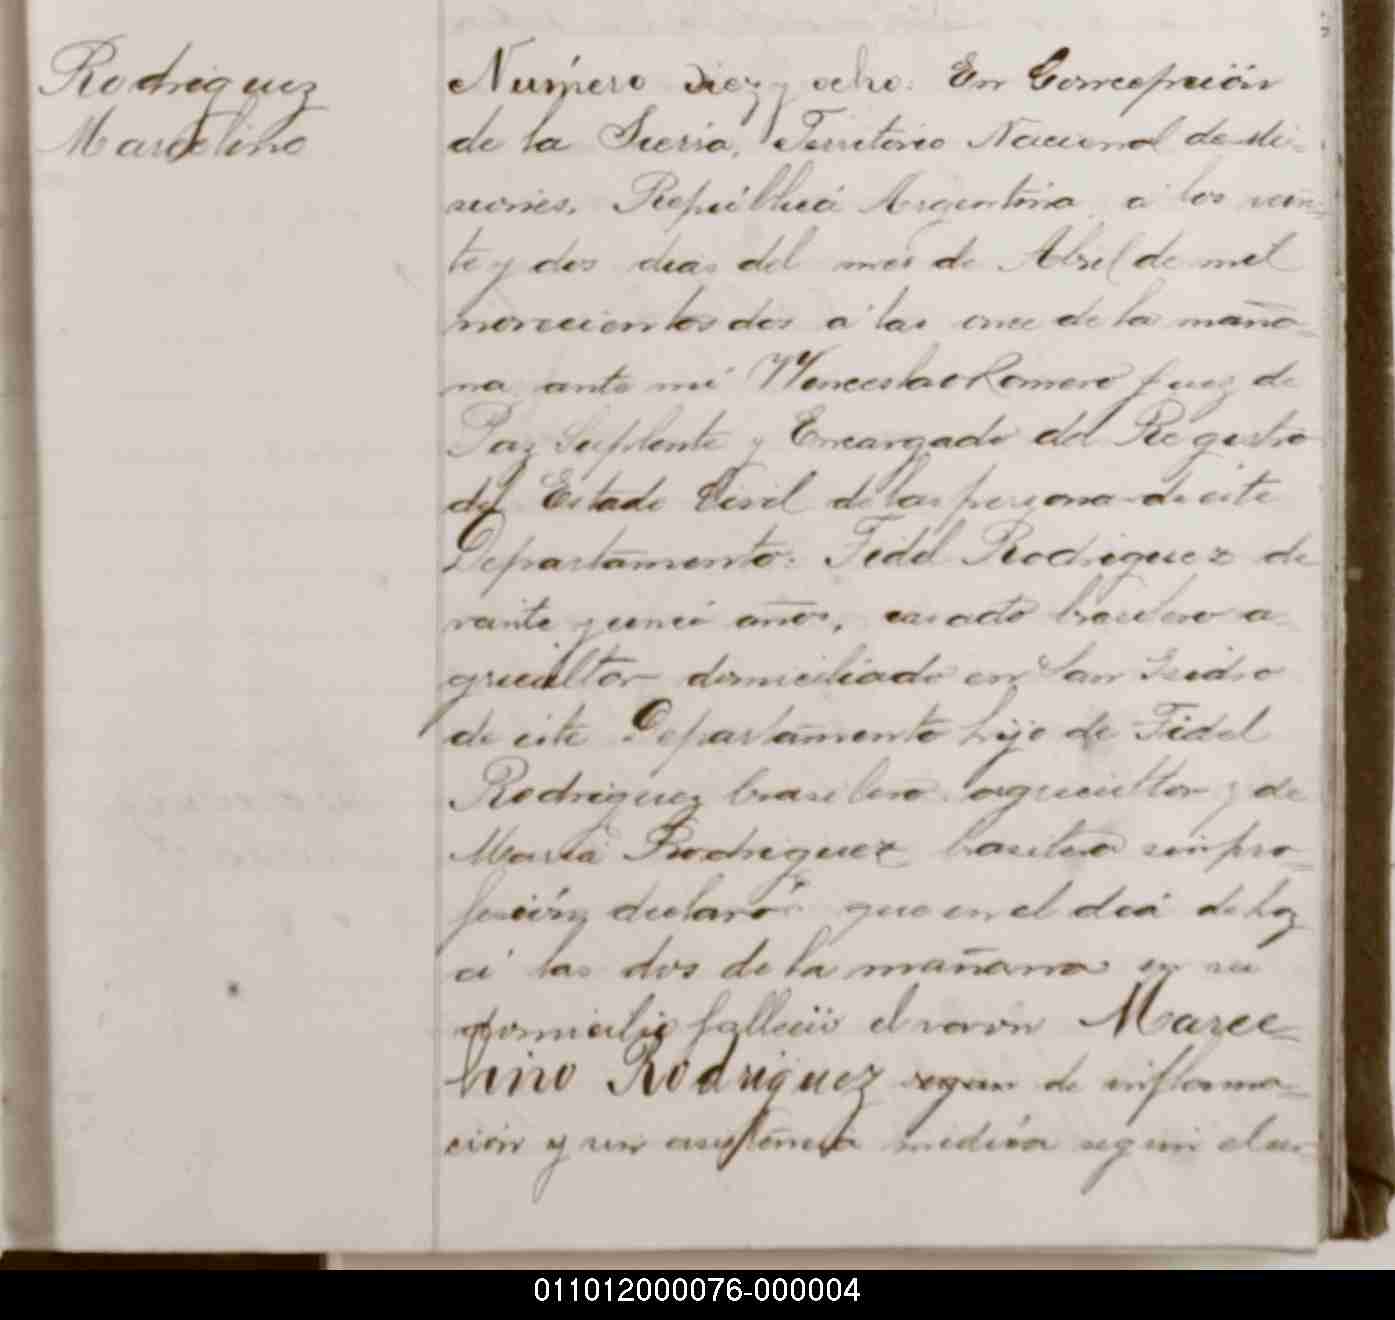 Rodriguez
Marcelino
Número diez y ocho. En Concepción
de la Sierra, Territorio Nacional de Mi-
siones, República Argentina, a los vein-
te y dos dias del mes de Abril de mil
novecientos dos a las once de la maña-
na ante mi Wenceslao Romero Juez de
Paz Suplente y Encargado del Registro
del Estado Civil de las personas de este
Departamento: Fidel Rodriguez de
años, casado brasilero a-
gricultor domiciliado en San Isidro
de este Departamento hijo de Fidel
Rodriguez brasilero agricultor y de
Maria Rodriguez brasilera sin pro-
fesión, declaró que en el dia de hoy
a las dos de la mañana en su
domicilio falleció el varon Marce-
lino Rodriguez de informa-
ción y sin asistencia médica segun el cer-
011012000076-000004